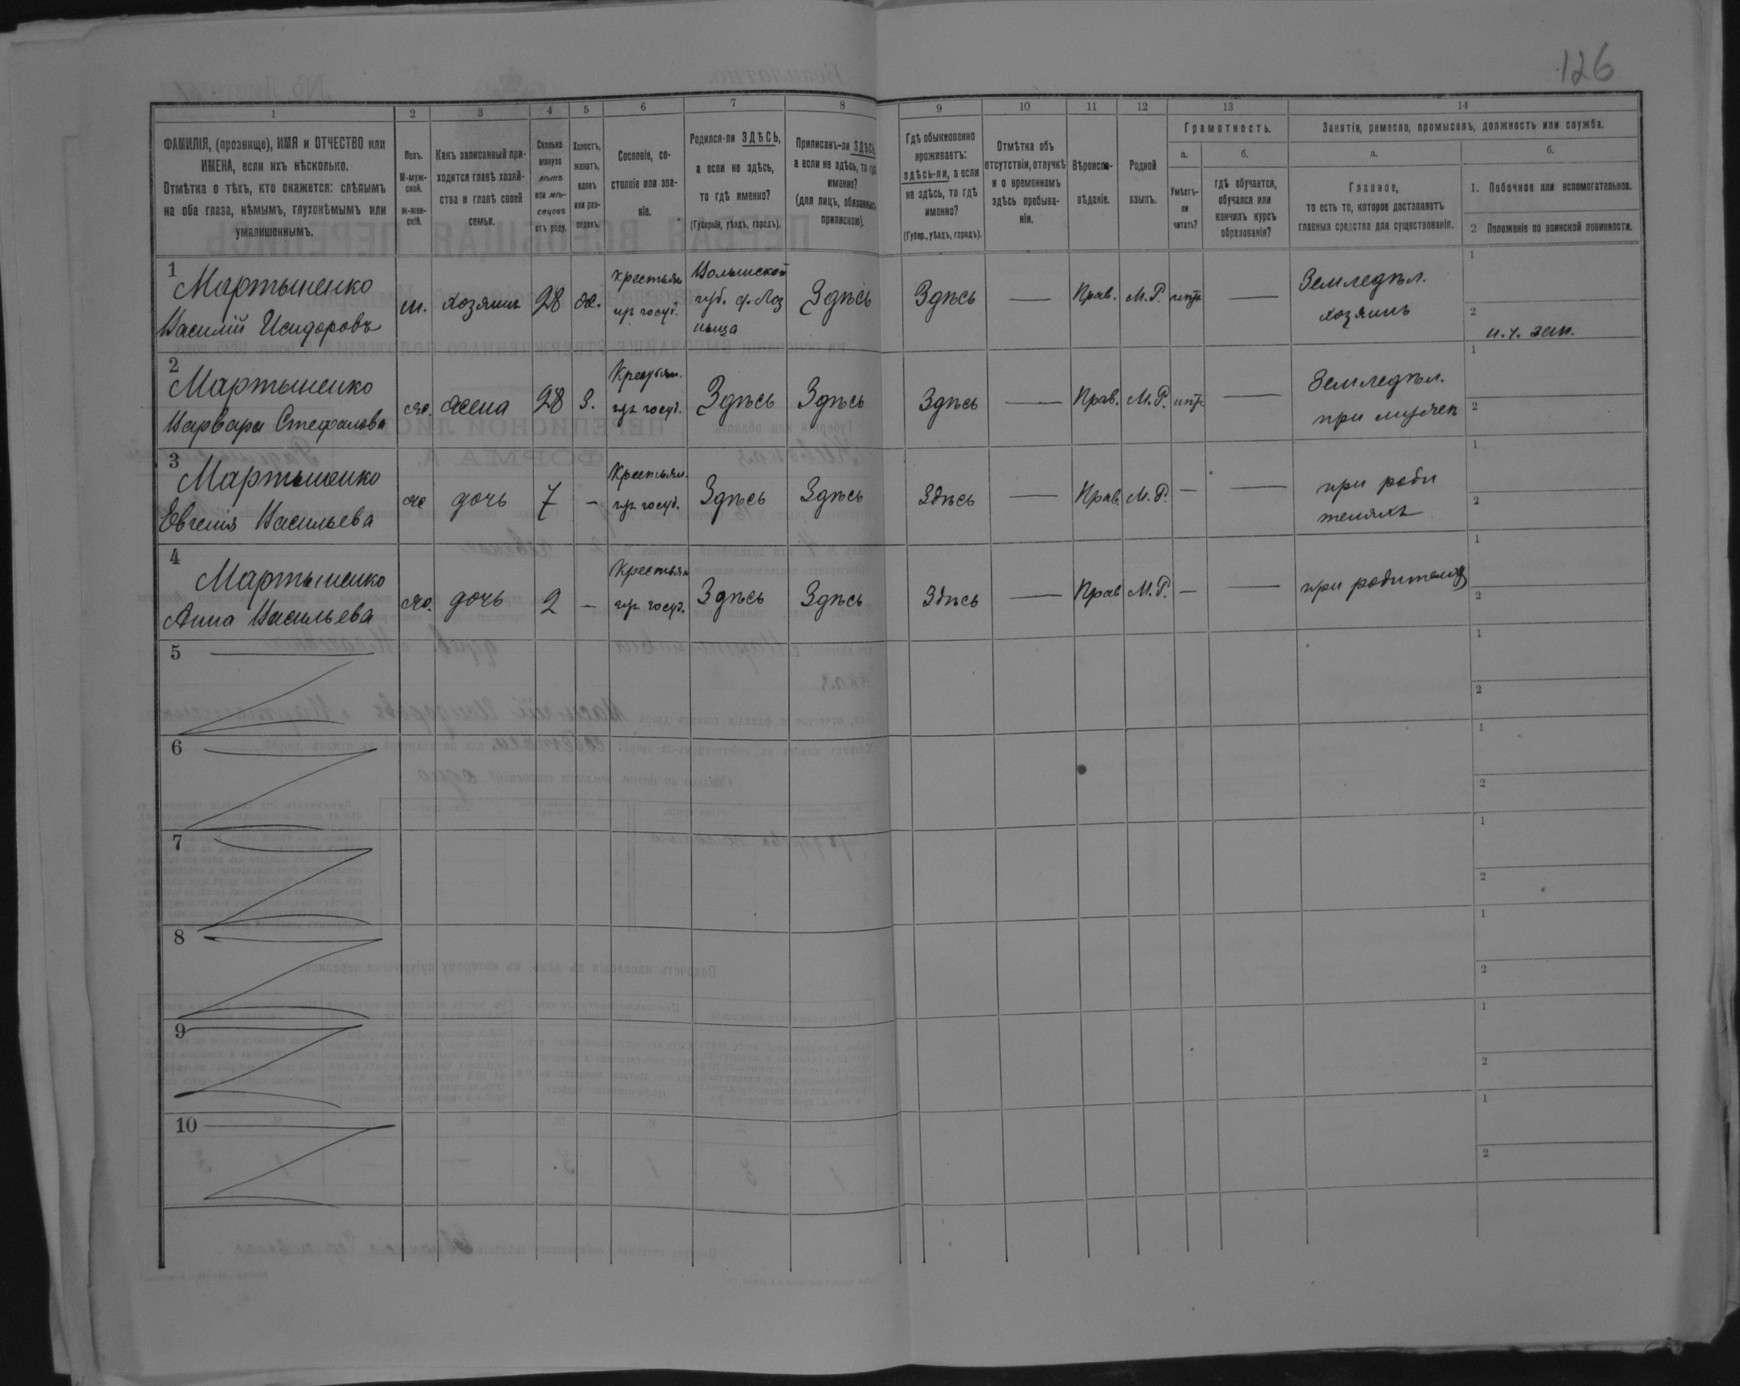 126
1 2 3 4 5 6 7 8 9 10 11 12 13 14
ФАМИЛІЯ, (прозвище), ИМЯ и ОТЧЕСТВО или
ИМЕНА, если ихъ нѣсколько.
Отмѣтка о тѣхъ, кто окажется: слѣпымъ
на оба глаза, нѣмымъ, глухонѣмымъ или
умалишеннымъ.
Полъ.
М-муж-
ской.
ж-жен-
скій.
Какъ записанный при-
ходится главѣ хозяй-
ства и главѣ своей
семьи.
Сколько
минуло
лѣтъ
или мѣ-
сяцевъ
отъ роду.
Холостъ,
женатъ,
вдовъ
или раз-
веденъ.
Сословіе, со-
стояніе или зва-
ніе.
Родился-ли ЗДѢСЬ,
а если не здѣсь,
то гдѣ именно?
(Губернія, уѣздъ, городъ).
Приписанъ-ли ЗДѢСЬ,
а если не здѣсь, то гдѣ
именно?
(для лицъ, обязанныхъ
припискою).
Гдѣ обыкновенно
проживаетъ:
здѣсь-ли, а если
не здѣсь, то гдѣ
именно?
(Губер., уѣздъ, городъ).
Отмѣтка объ
отсутствіи, отлучкѣ
и о временномъ
здѣсь пребыва-
ніи.
Вѣроиспо-
вѣданіе.
Родной
языкъ.
Грамотность.
а.
Умѣетъ-
ли
читать?
б.
гдѣ обучается,
обучался или
кончилъ курсъ
образованія?
Занятіе, ремесло, промыселъ, должность или служба.
а.
Главное,
то есть то, которое доставляетъ
главныя средства для существованія.
б.
1. Побочное или вспомогательное.
2 Положеніе по воинской повинности.
1
Мартыненко
Василій Исидоровъ
м. хозяинъ 28 ж.
Крестьян.
Волынской
губ.
Здѣсь Здѣсь — Прав. М.Р. —
Земледѣл.
хозяинъ
1
2
2
Мартыненко
Варвара Стефанова
ж. жена 28 З.
Крестьян.
Здѣсь Здѣсь Здѣсь — Прав. М.Р. —
Земледѣл.
при
1
2
3
Мартыненко
Евгенія Васильева
ж дочь 7 —
Крестьян.
Здѣсь Здѣсь Здѣсь — Прав. М.Р. — —
при роди
теляхъ
1
2
4
Мартыненко
Анна Васильева
ж. дочь 2 —
Крестьян
Здѣсь Здѣсь Здѣсь — Прав М.Р. — —
при родителях
1
2
5
1
2
6
1
2
7
1
2
8
1
2
9
1
2
10
1
2